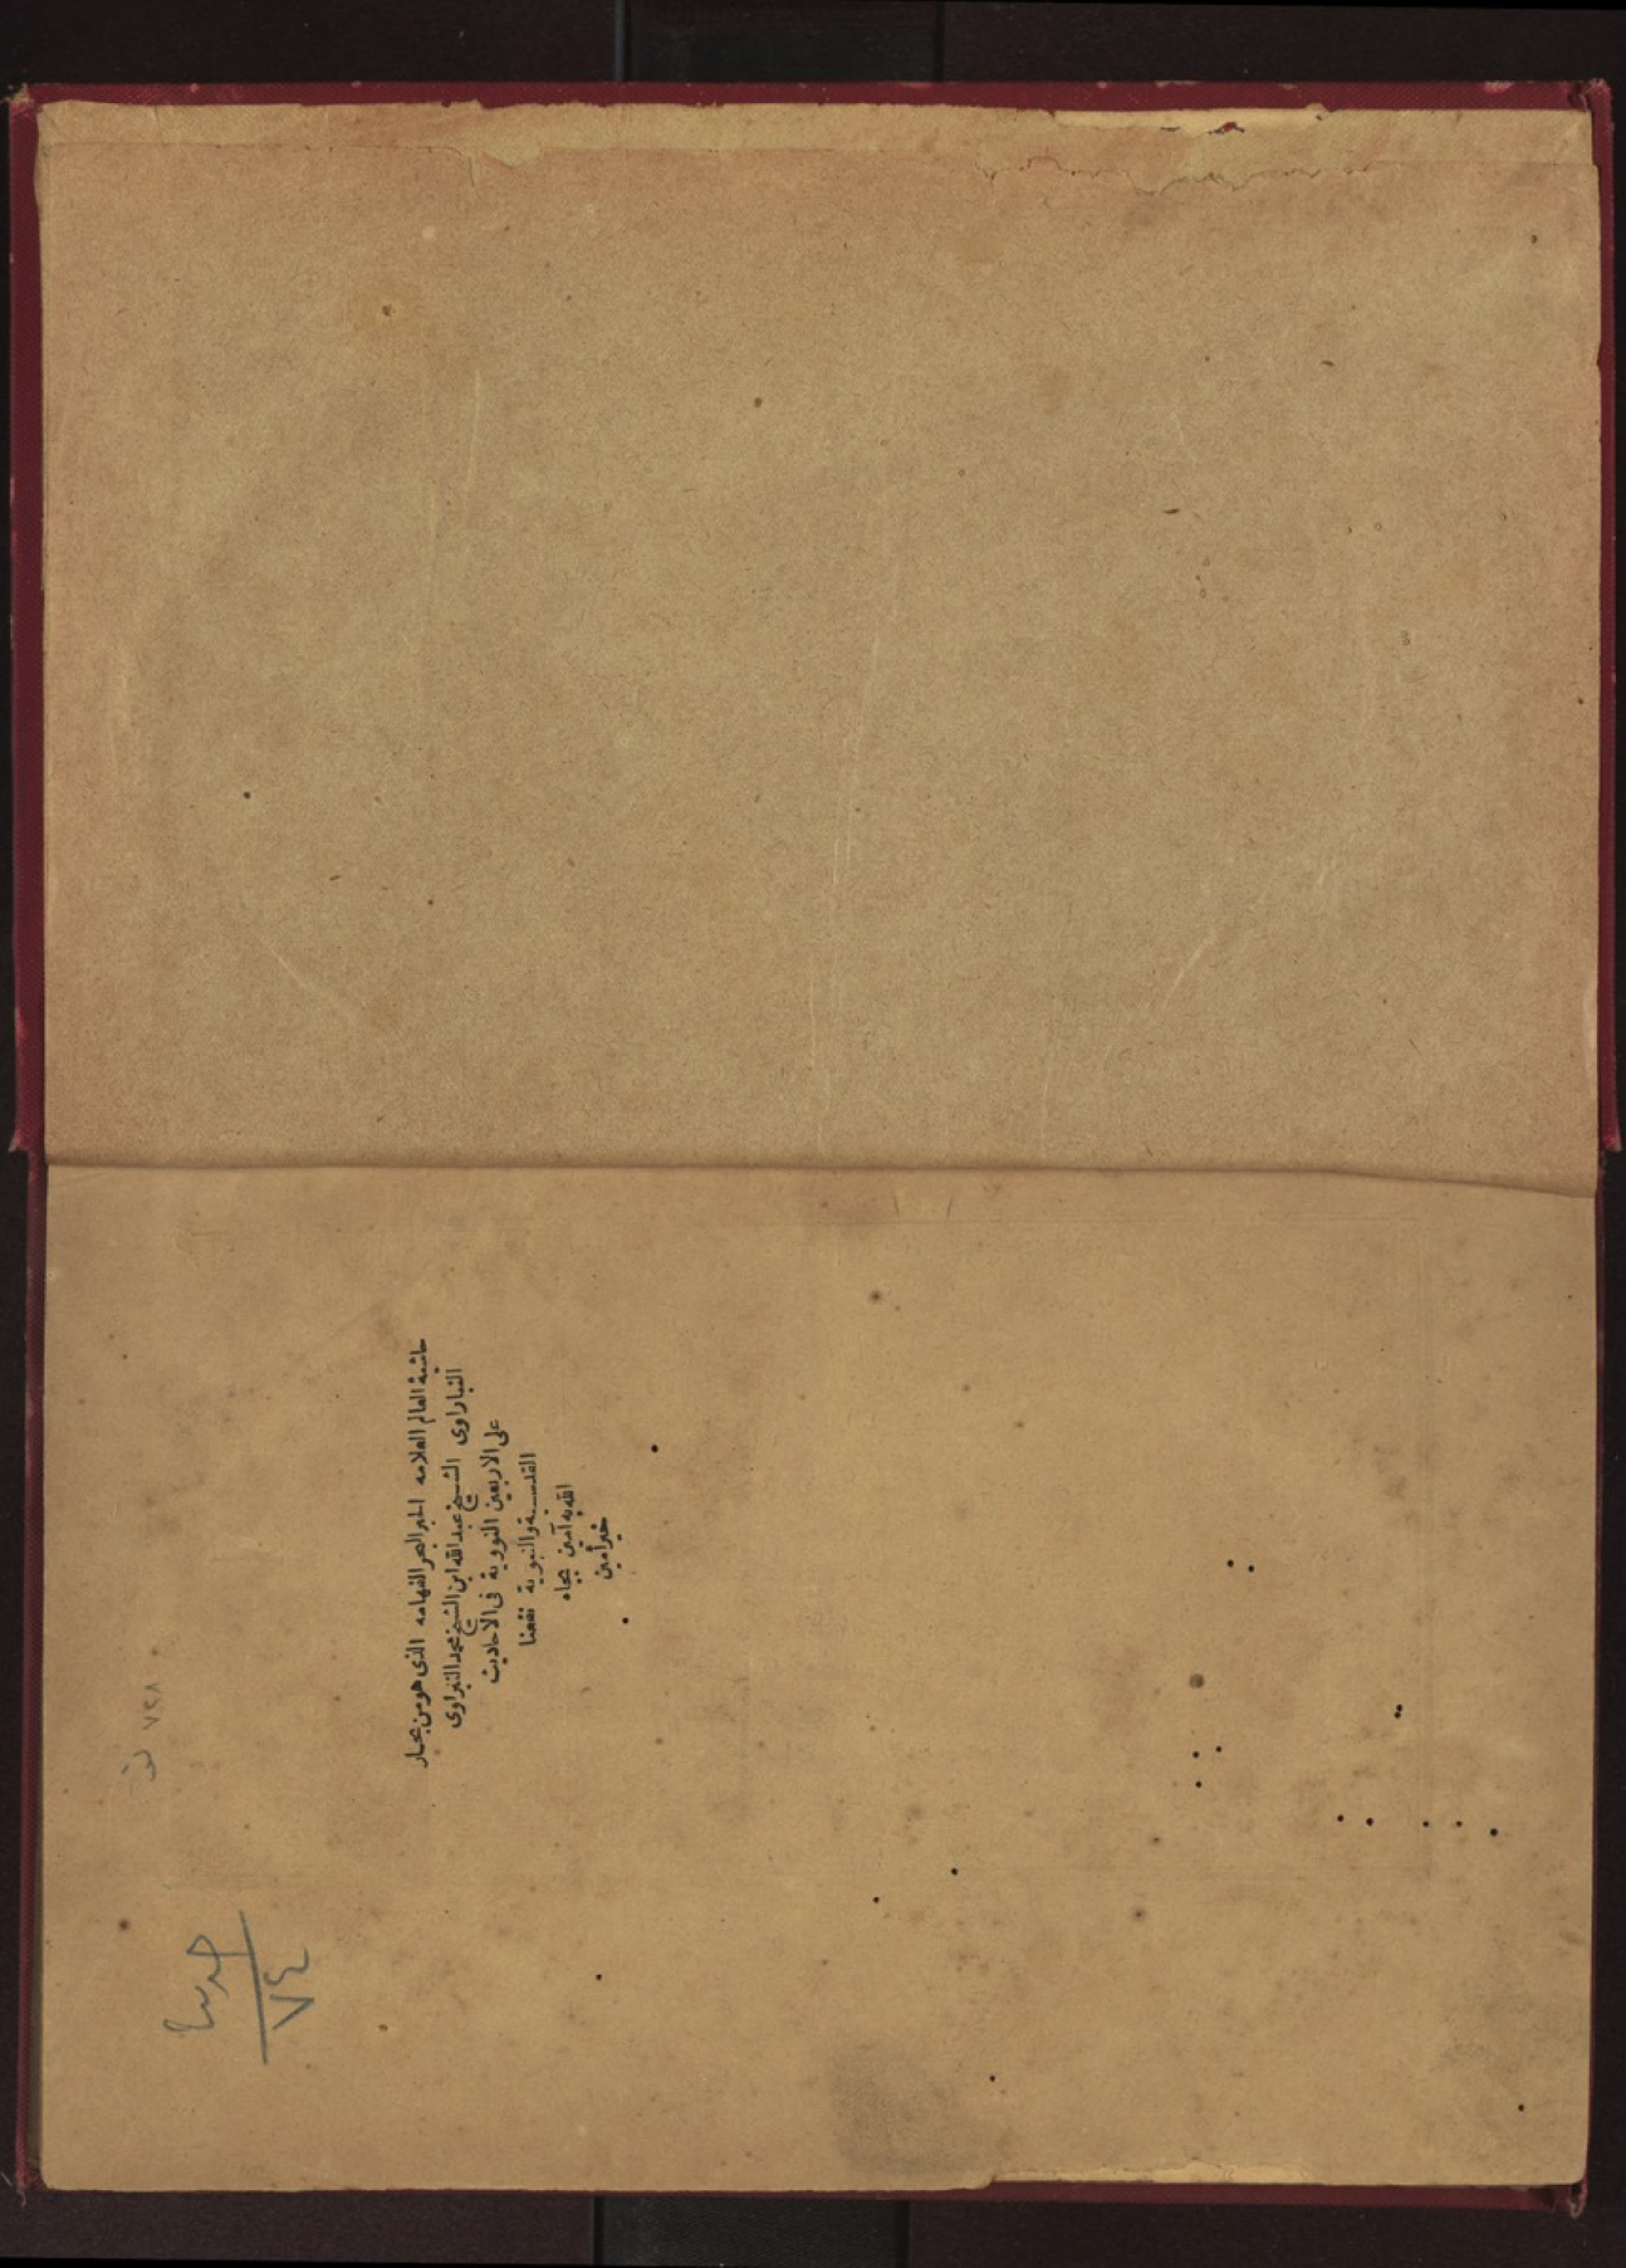 حاشية العالم العلامه الحبر البحر الفهامه الذى هو من بحار
النبراوى الشيخ عبدالله ابن الشيخ محمد النبراوى
على الاربعين النووية فى الاحاديث
القدسية والنبوية نفعنا
الله به آمين بجاه
خير أمين
٧٢٨
حديث
٧٤